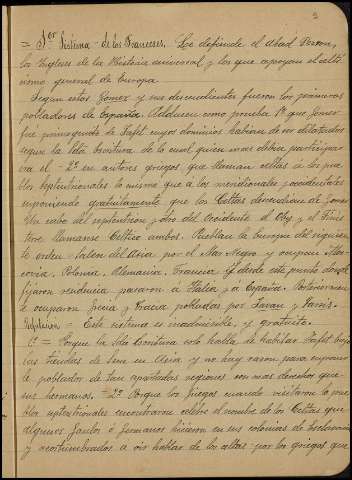 3
= 1er Sistema de los Franceses. Lo defiende el Abad Pezron,
los Ingleses de la Historia universal y los que apoyan el celti-
cismo general de Europa
Segun estos Gomer y sus descendientes fueron los primeros
pobladores de España. Adducen como prueba 1º que Gomer
fue primogenito de Jafet cuyos dominios habian de ser dilatados
segun la Sda Escritura de lo cual quien mas debia participar
era el - 2º en autores griegos que llaman celtas á los pue-
blos septentrionales lo mismo que á los meridionales y occidentales
suponiendo gratuitamente que los Celtas descienden de Gomer
Un cabo del septentrion y otro del Occidente el Oby y el Finis
terre llamanse Celtico ambos. Pueblan la Europa del siguien
te orden - Salen del Asia por el Mar Negro y ocupan Mos-
covia, Polonia, Alemania, Francia y desde este punto donde
fijaron residencia pasaron á Italia y á España. Posteriormen
te ocuparon Grecia y Tracia pobladas por Javan y Tiras.
Refutacion = Este sistema es inadmisible, y gratuito.
1º = Porque la Sda Escritura solo habla de habitar Jafet bajo
las tiendas de Sem en Asia y no hay razon para suponer
le poblador de tan apartadas regiones con mas derechos que
sus hermanos. = 2º Porque los Griegos cuando visitaron los pue
blos septentrionales encontraron celebre el nombre de los Celtas que
algunos Galos ó Germanos hicieron en sus colonias de
y acostumbrados á oir hablar de los celtas por los griegos que